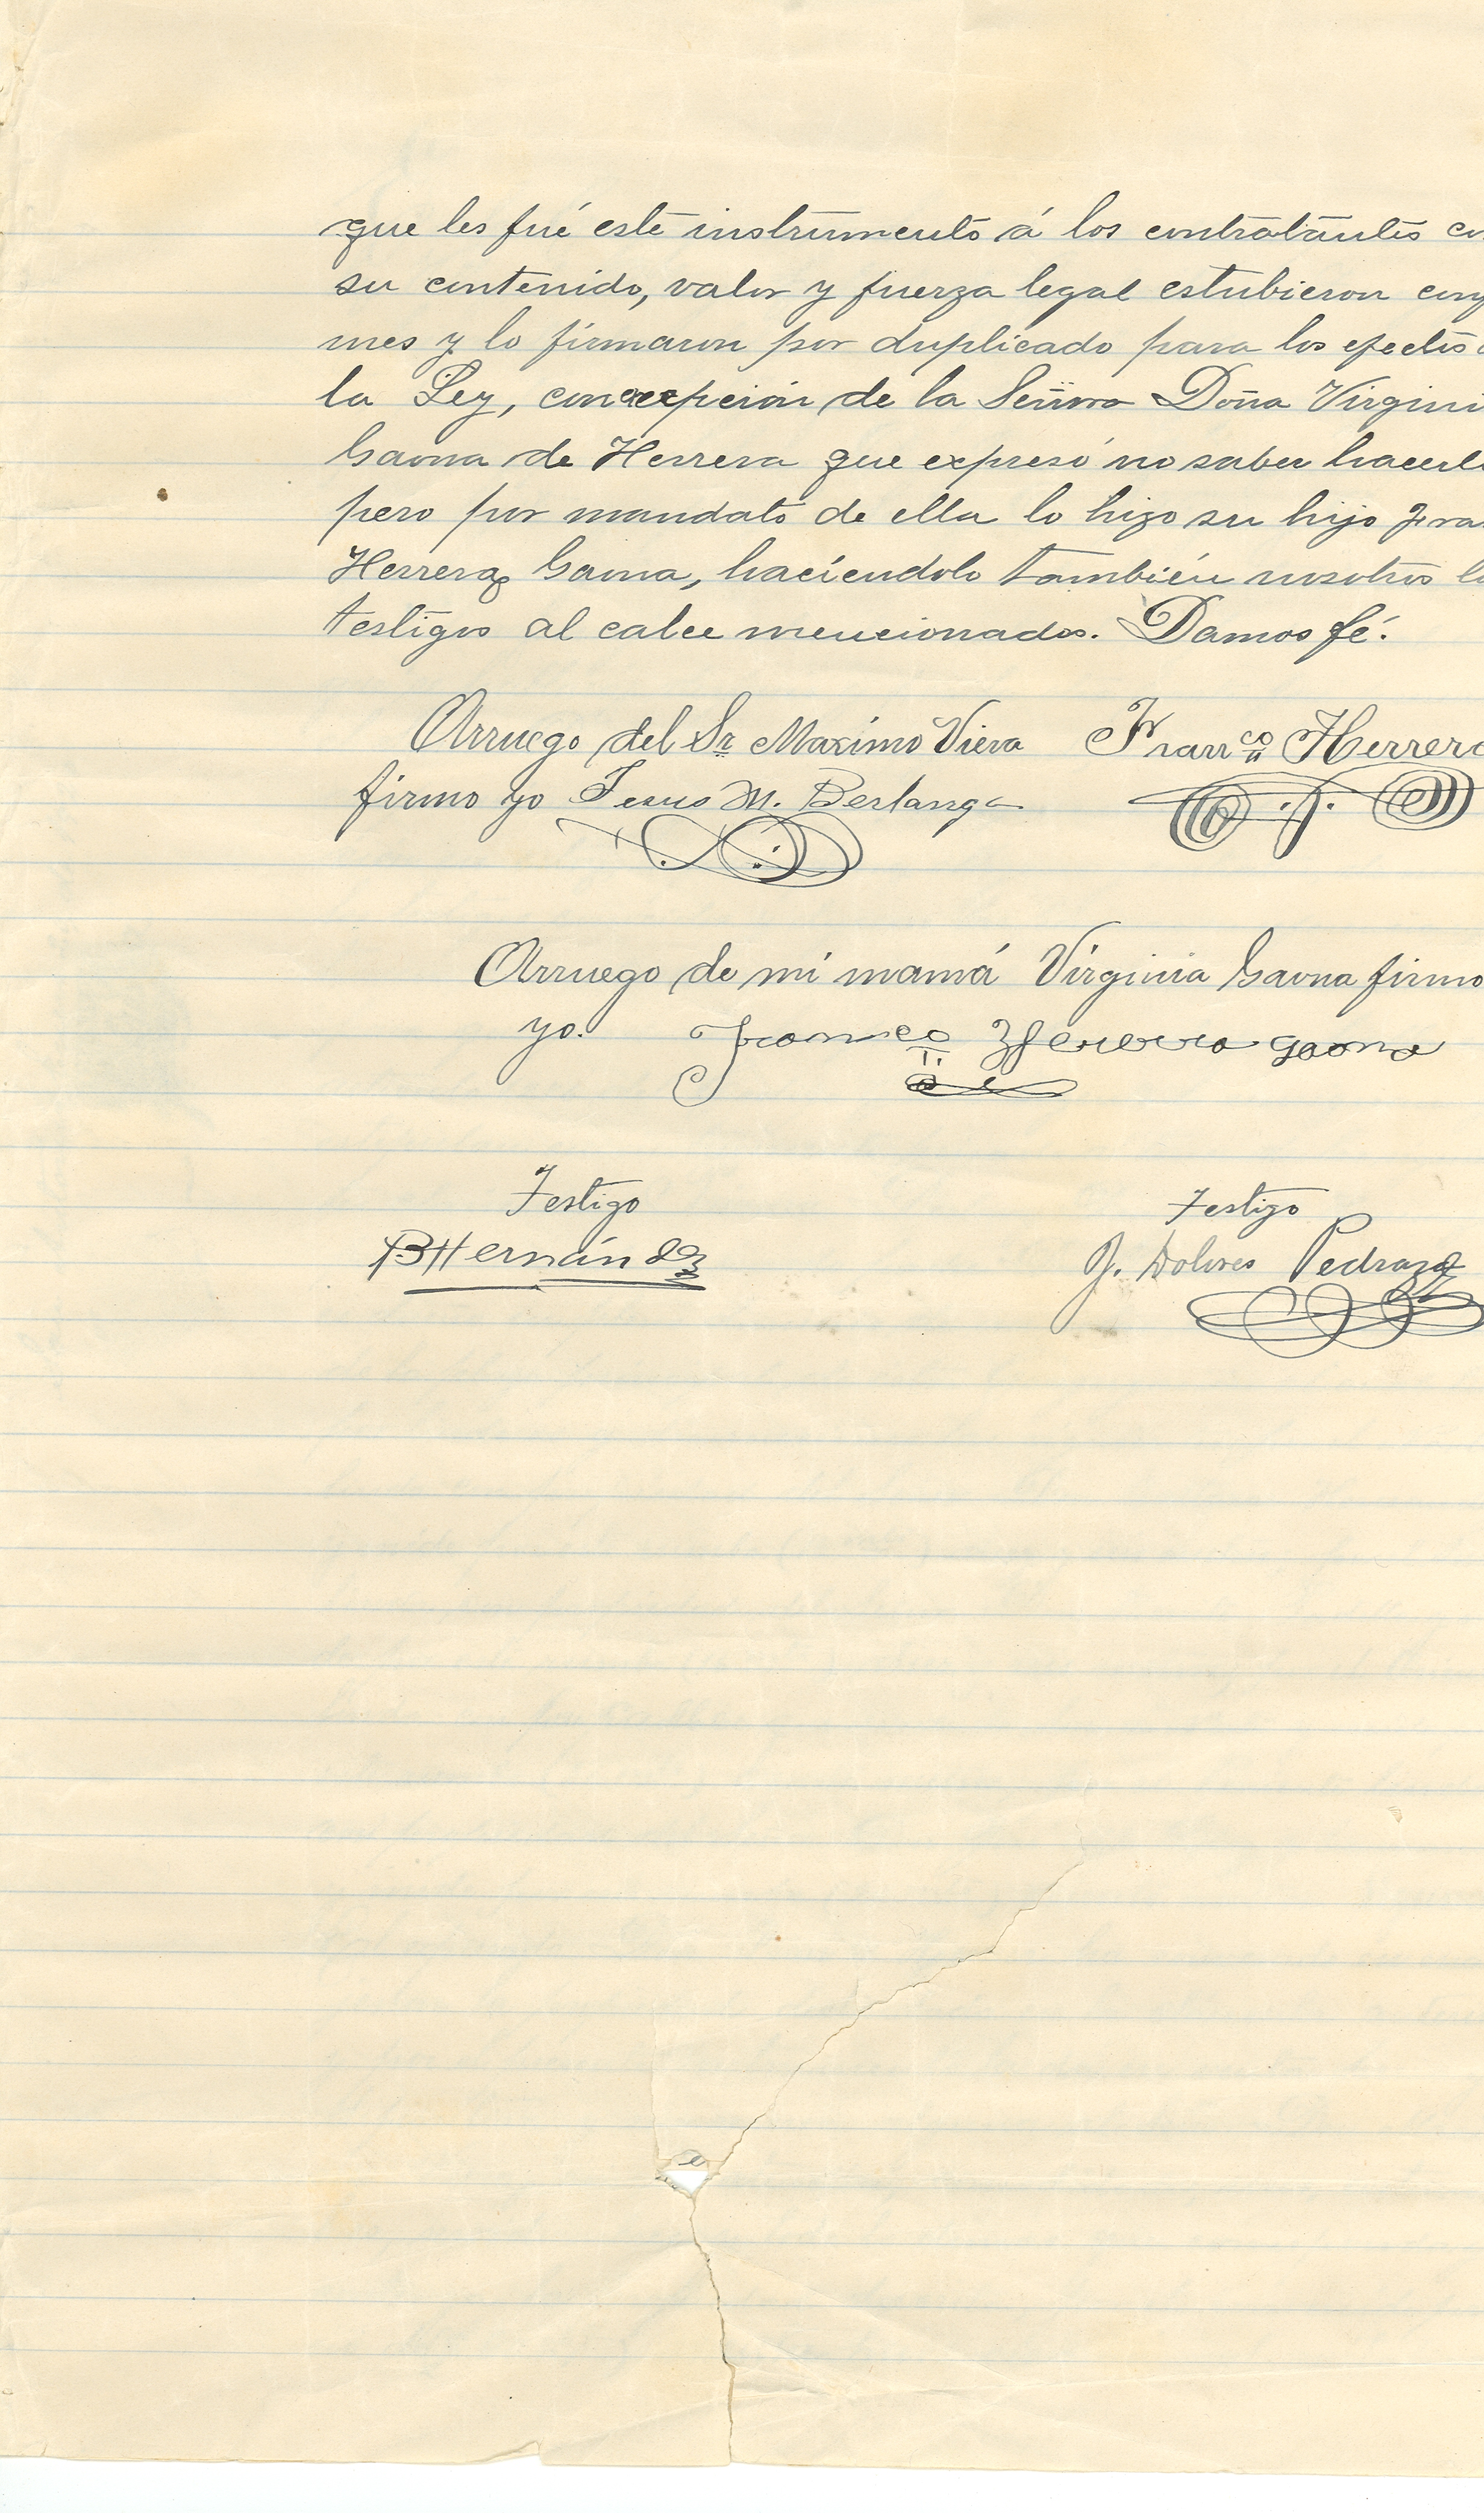 que les fué este instrumento á los contratantes co
su contenido, valor y fuerza legal estubieron conf
mes y lo firmaron por duplicado para los efectos d
la Ley, con excepción de la Señora Doña Virgini
Gaona de Herrera que expresó no saber hacerlo
pero por mandato de ella lo hizo su hijo Fra
Herrera Gaona, haciendolo también nosotros lo
testigos al calce mencionados. Damos fé.
Arruego del Sr Maximo Viera Franco Herrera
firmo yo Jesus M. Berlanga
Arruego de mi mamá Virginia Gaona firmo
yo. Franco Herrera gaona
Testigo Testigo
B Hernández J. Dolores Pedraza